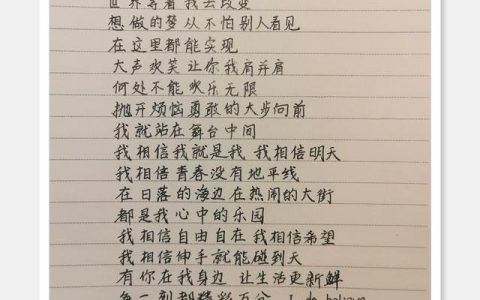 世界等着我去改变
想做的梦从不怕别人看见
在这里都能实现
大声欢笑 让你我肩并肩
何处不能欢乐无限
抛开烦恼勇敢的大步向前
我就站在舞台中间
我相信我就是我 我相信明天
我相信青春没有地平线
在日落的海边在热闹的大街
都是我心中的乐园
我相信自由自在 我相信希望
我相信伸手就能碰到天
有你在我身边 让生活更新鲜
每一刻都精彩百分 I do believe